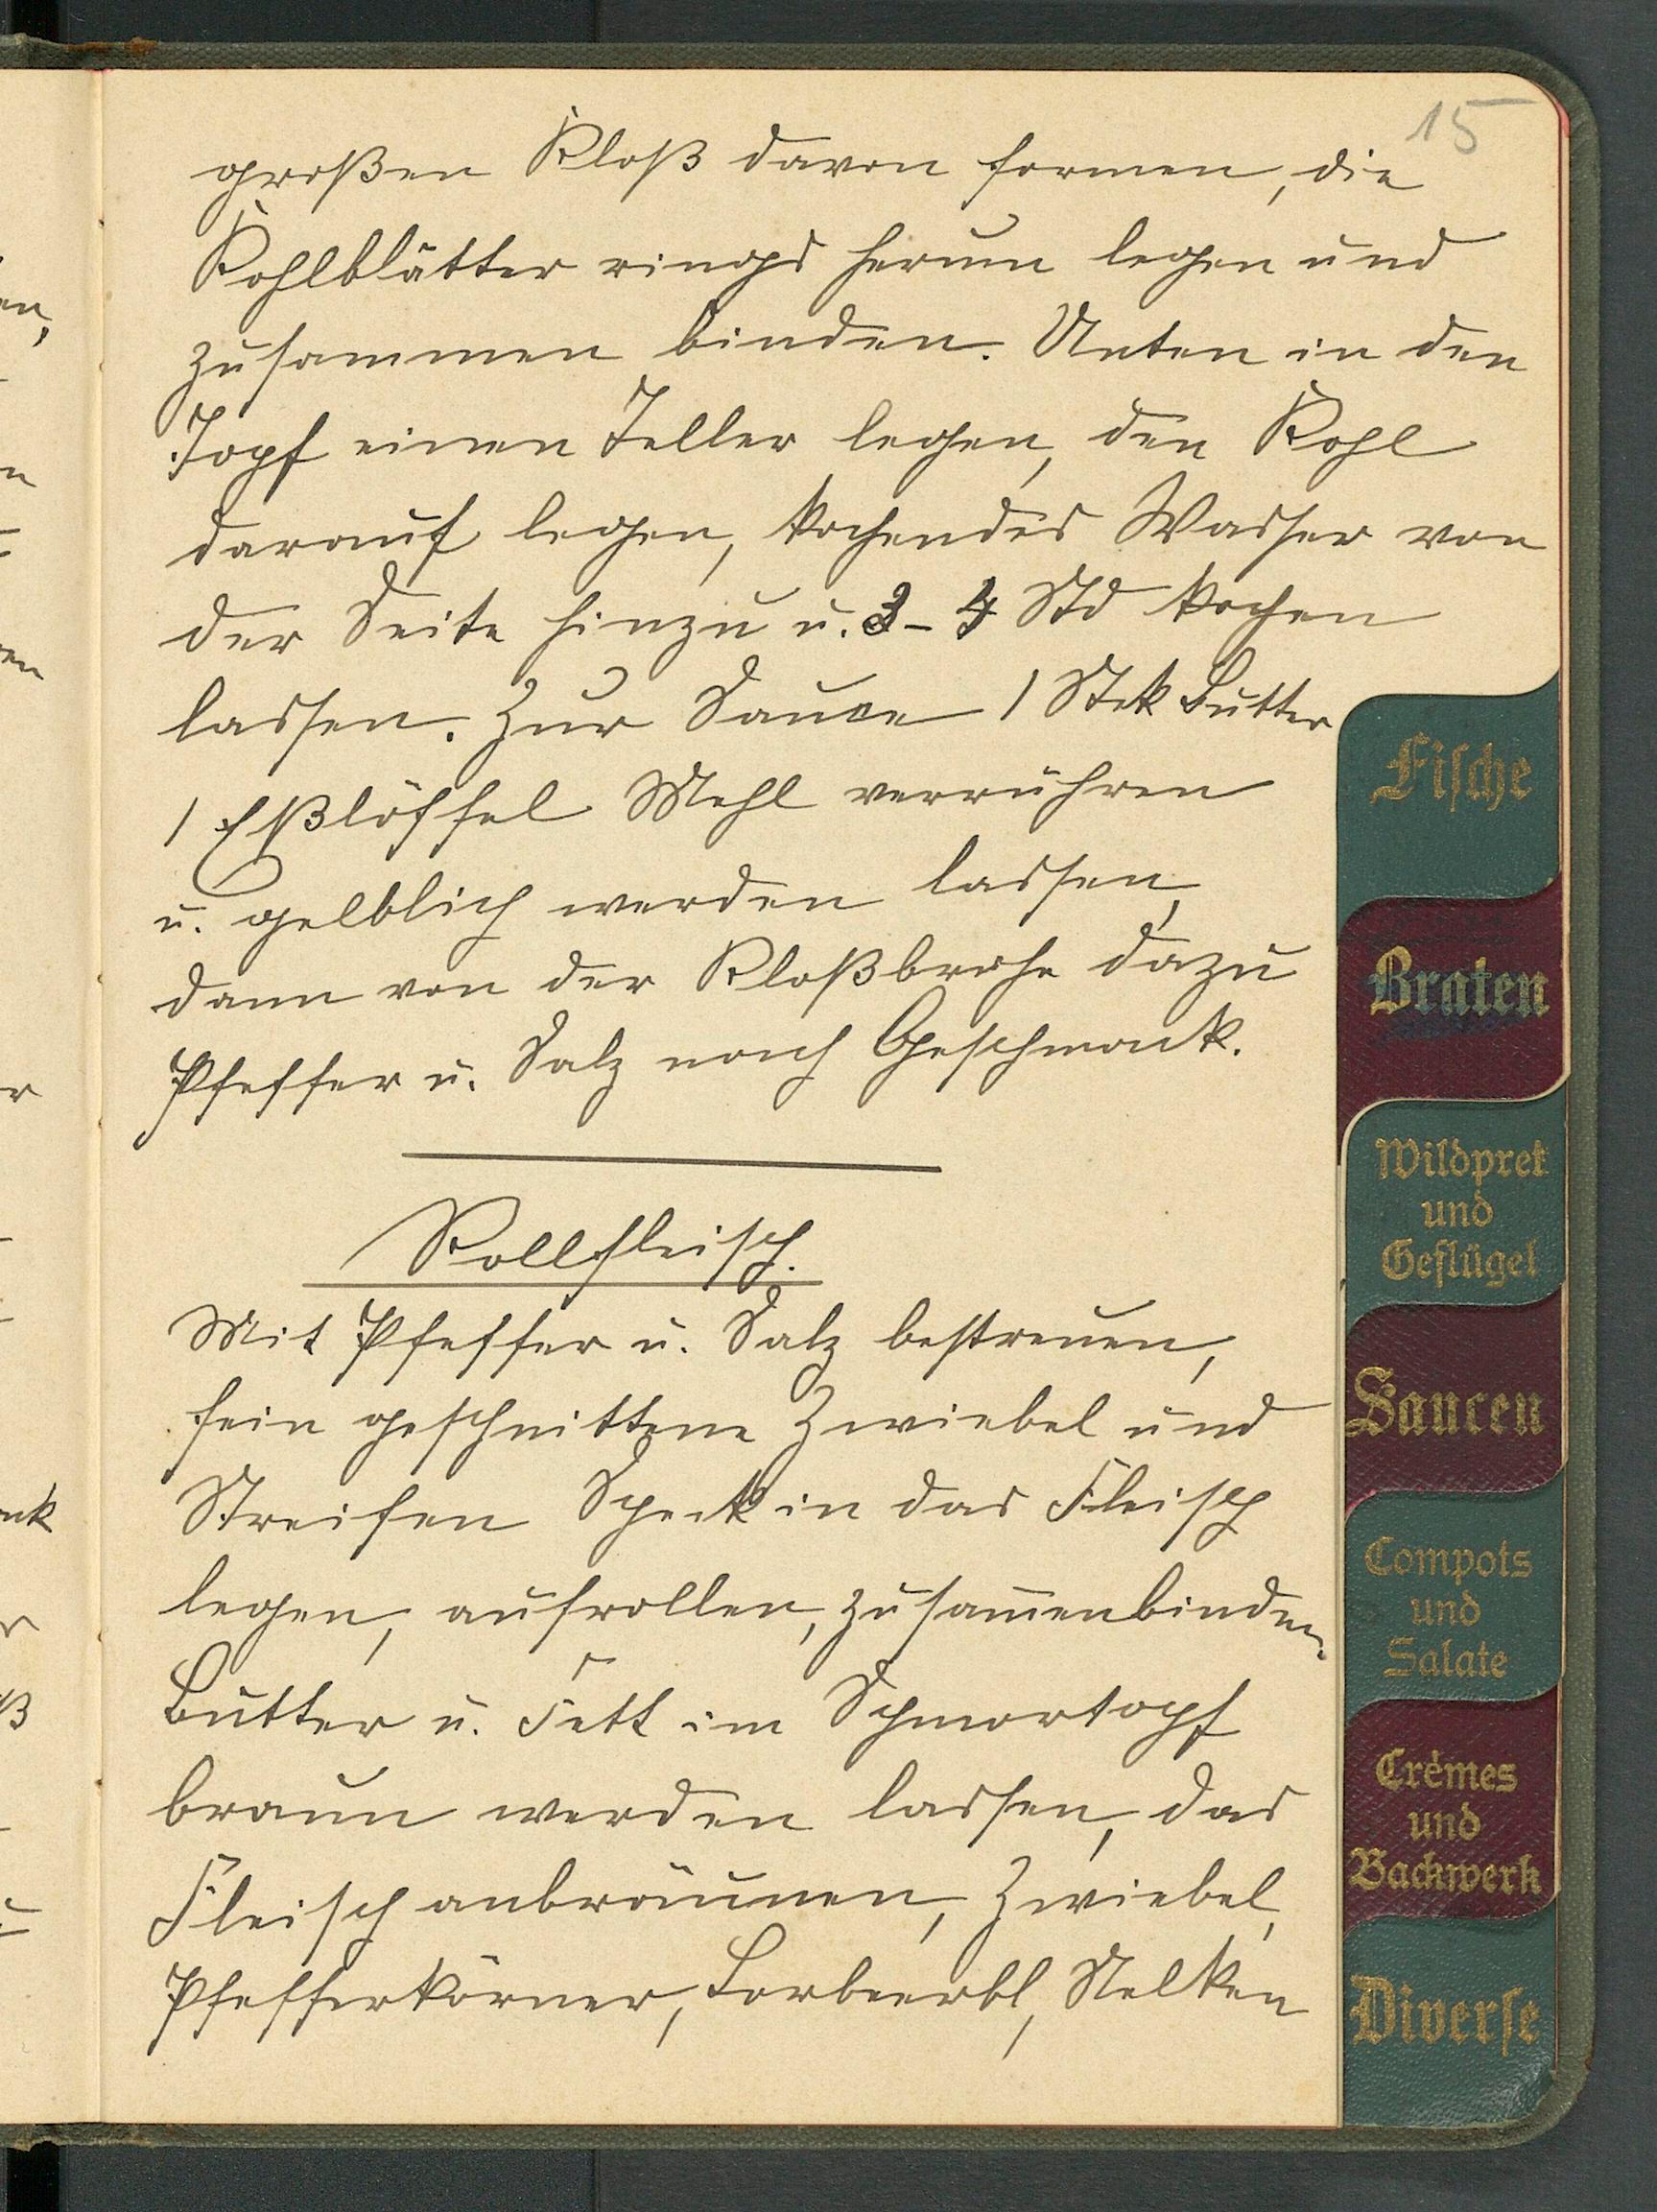 15
großen Kloß davon formen, die
Kohlblätter rings herum legen und
zusammen binden. Unten in den
Topf einen Teller legen, den Kohl
darauf legen, kochendes Wasser von
der Seite hinzu u. 3-4 Std kochen
lassen. Zur Sauce 1 Stck Butter
1 Eßlöffel Mehl verrühren
u. gelblich werden lassen,
dann von der Kloßbrühe dazu
Pfeffer u. Salz nach Geschmack.
Rollfleisch.
Mit Pfeffer u. Salz bestreuen,
fein geschnittene Zwiebel und
Streifen Speck in das Fleisch
legen, aufrollen, zusam̅enbinden.
Butter u. Fett im Schmortopf
braun werden lassen, das
Fleisch anbräunen, Zwiebel,
Pfefferkörner, Lorbeerbl, Nelken
Fische
Braten
Wildpret
und
Geflügel
Saucen
Compots
und
Salate
Crêmes
und
Backwerk
Diverse